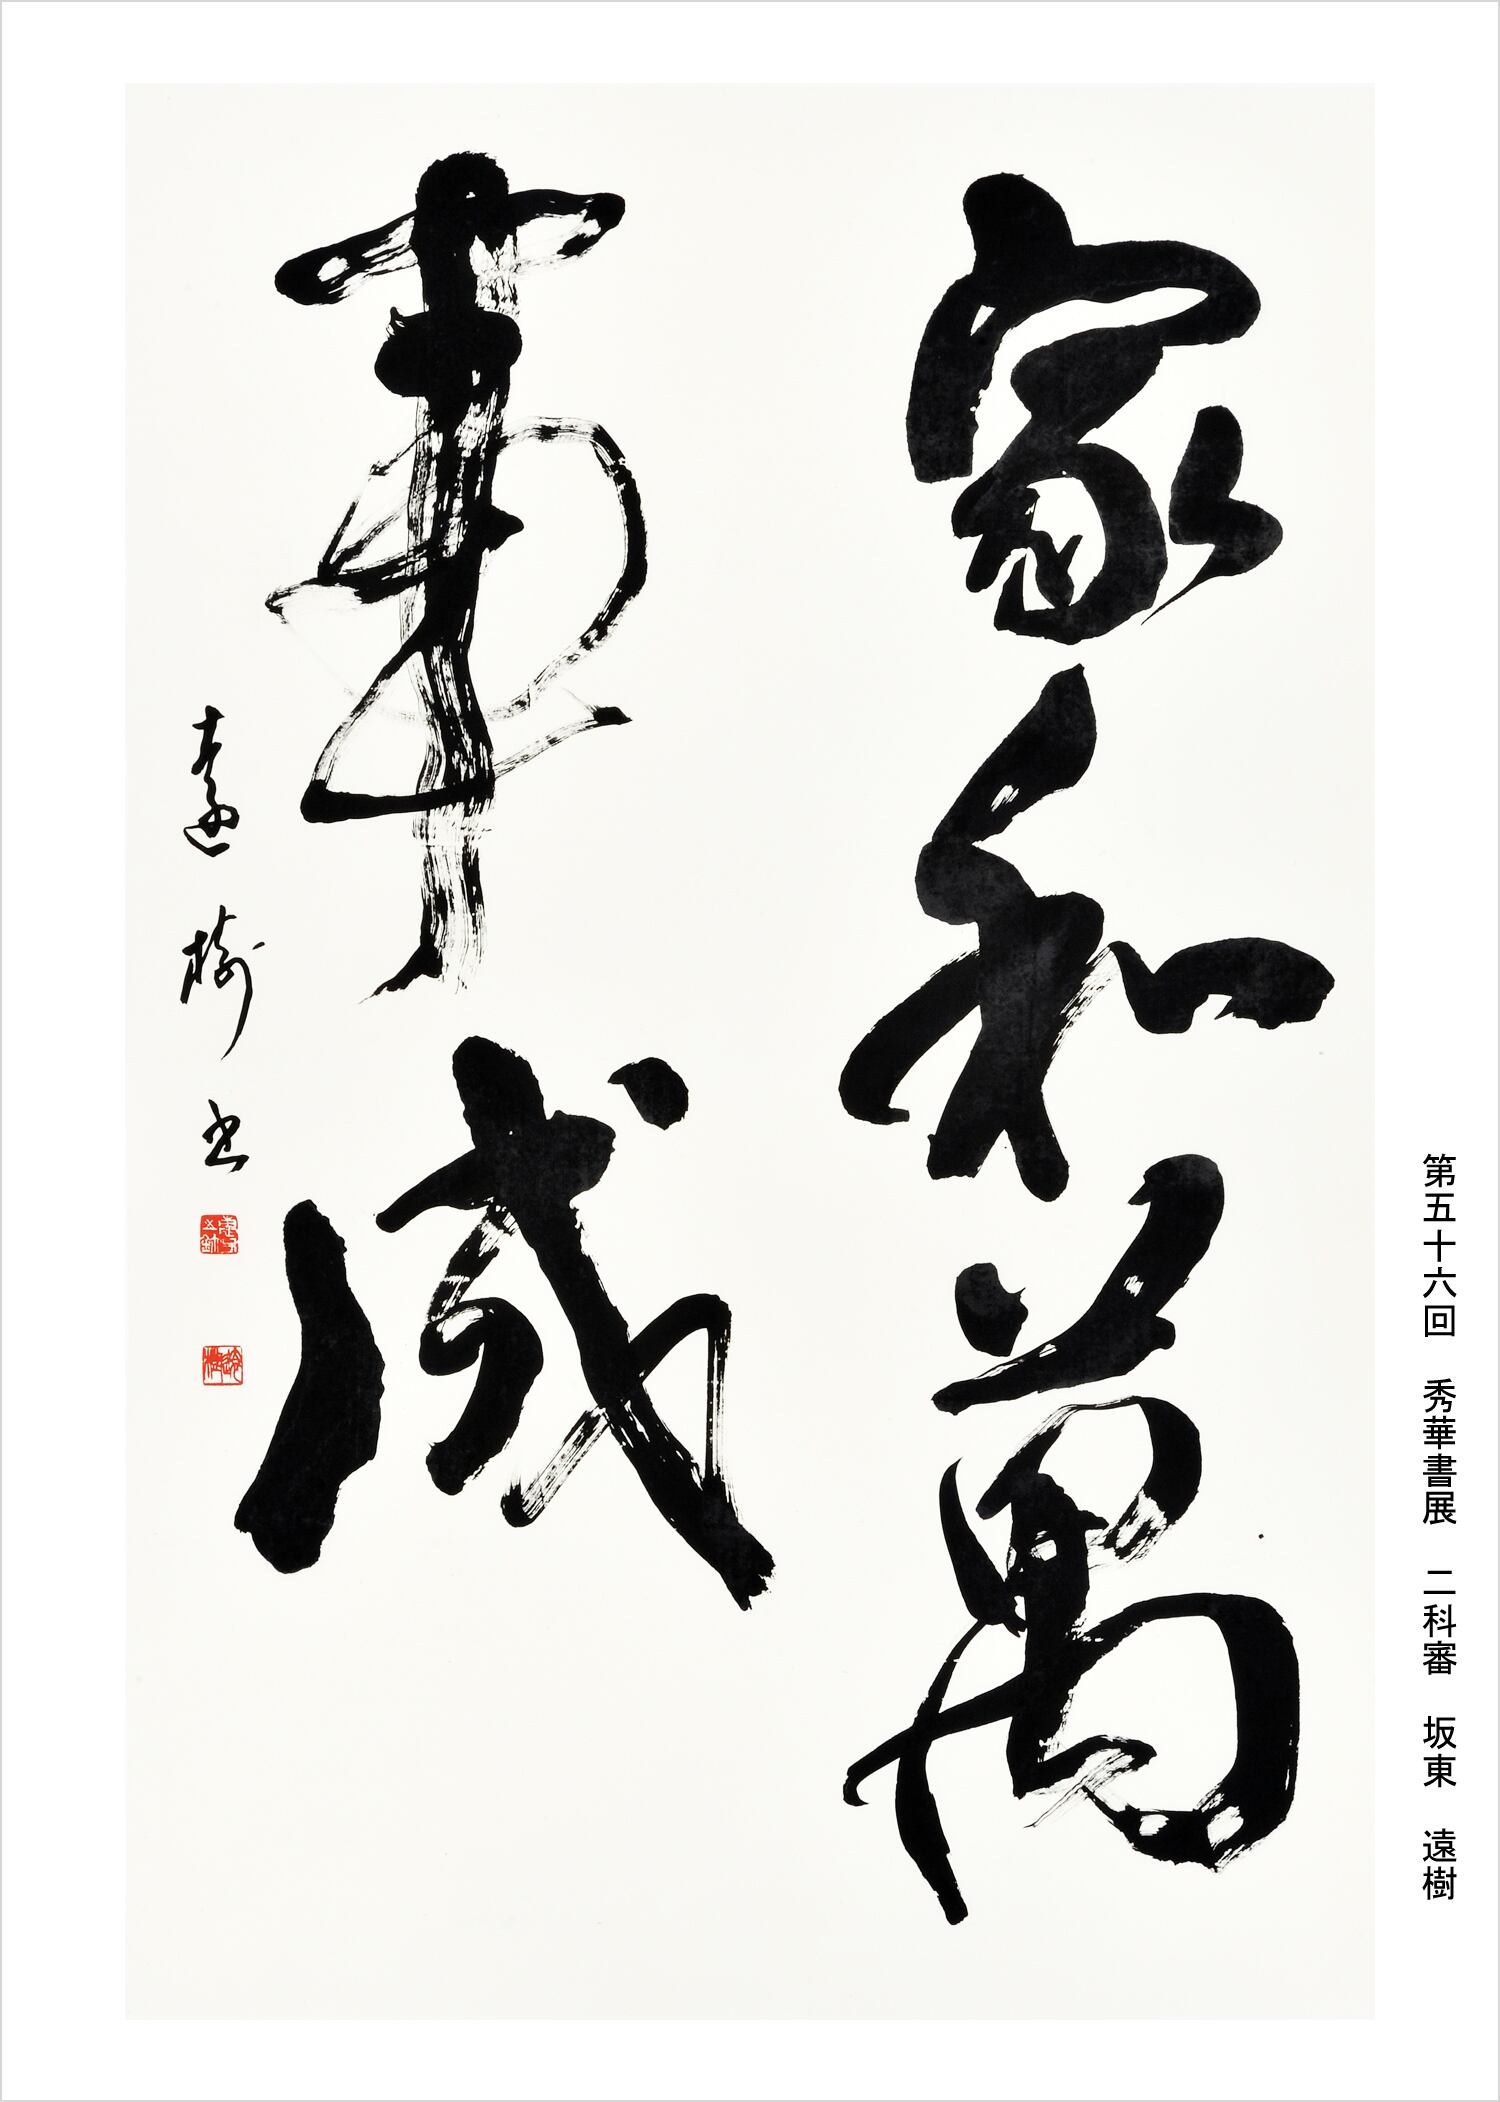 家和萬
事成
遠樹書
第五十六回　秀華書展　二科審　坂東　遠樹